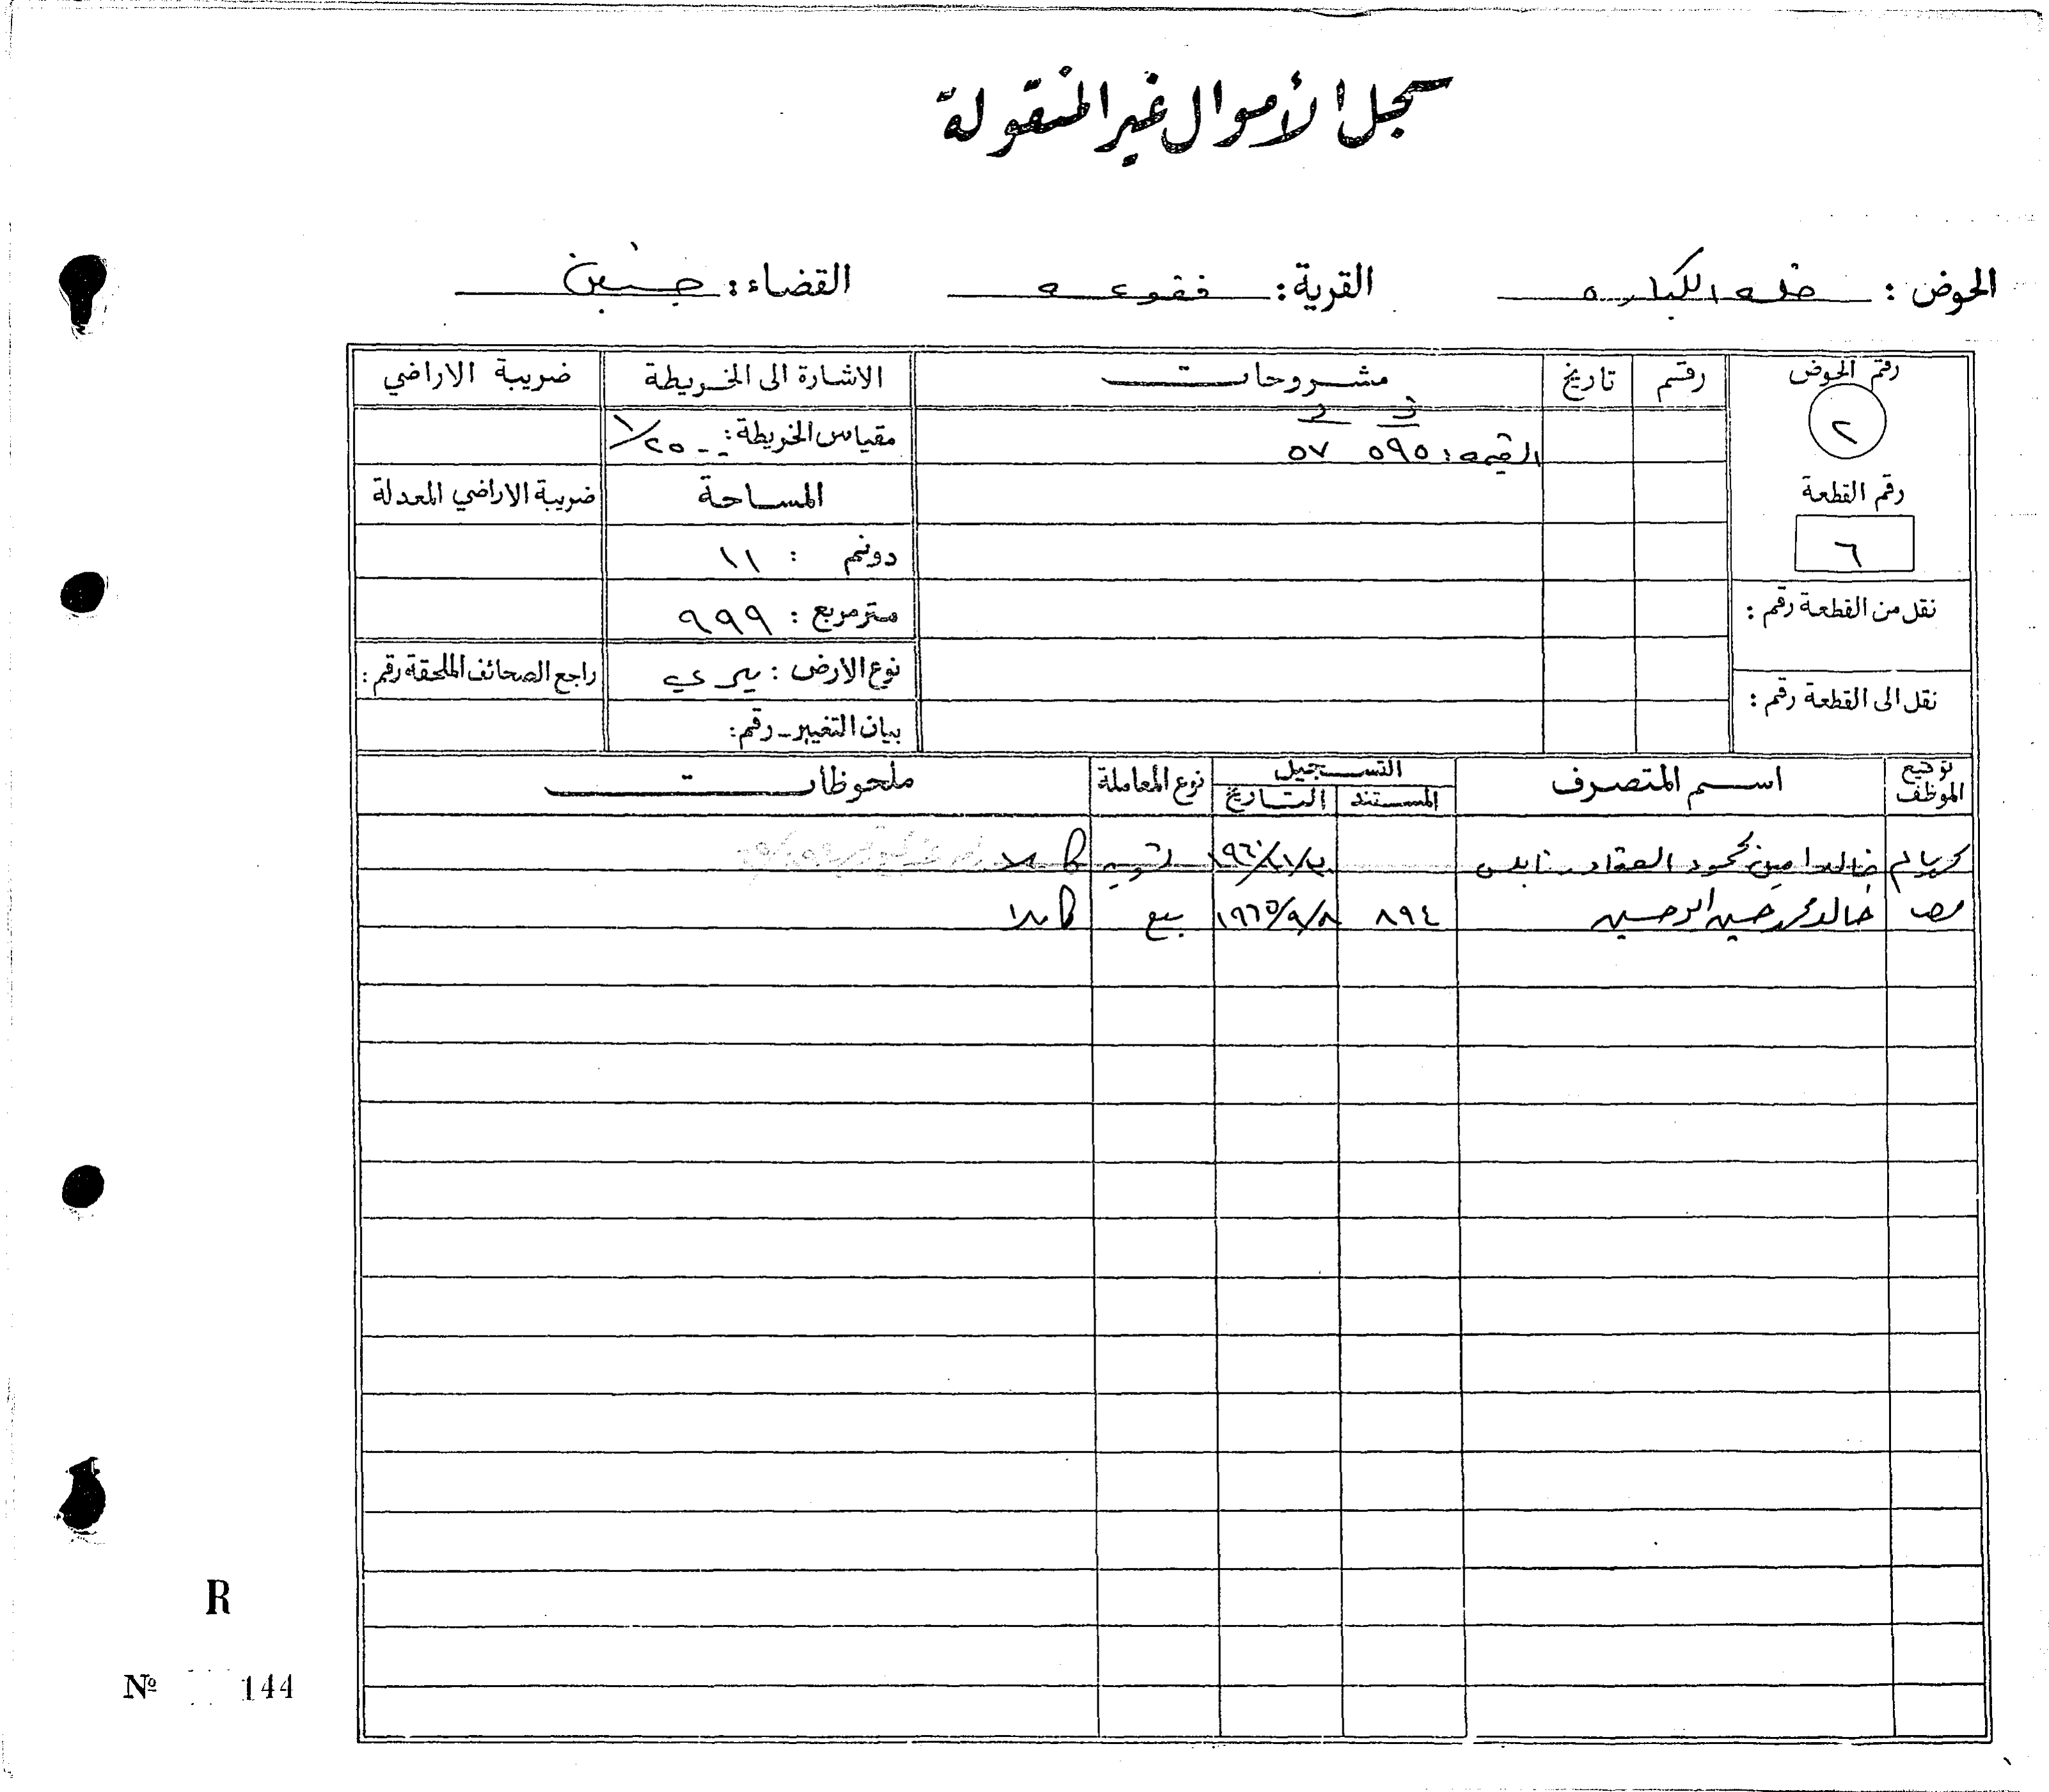 سجل الأموال غير المنقولة
الحوض : خلة الكباره القرية : فقوعه القضاء : جنين
رقم الحوض رقم تاريخ مشروحات الاشارة الى الخريطة ضريبة الاراضي
٢
القيمة : ٥٩٥ ٥٧
مقياس الخريطة : ١/٢٥٠٠
رقم القطعة المساحة ضريبة الاراضي المعدلة
٦
دونم : ١١
نقل من القطعة رقم : متر مربع : ٩٩٩
نوع الارض : ميري راجع الصحائف الملحقة رقم :
نقل الى القطعة رقم :
بيان التغيير - رقم :
توقيع الموظف اسم المتصرف التسجيل نوع المعاملة ملحوظات
المستند التاريخ
خالد امين محمود العقاد نابلس تسويه كاملا
خالد محمد حسين ابو حسين ٨٩٤ ١٩٦٥/٩/٨ بيع كاملا
R
№ 144